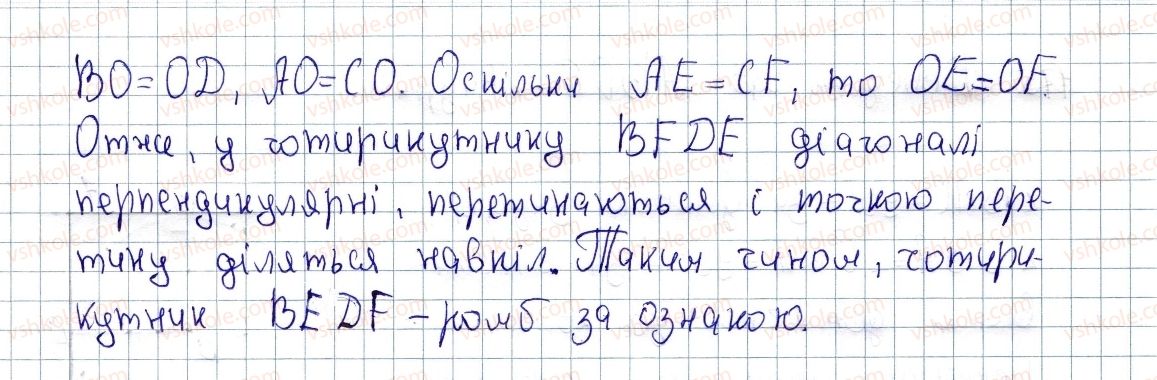 BO=OD, AO=CO. Оскільки AE=CF, то OE=OF.
Отже, у чотирикутнику BFDE діагоналі
перпендикулярні, перетинаються і точкою пере-
тину діляться навпіл. Таким чином, чотири-
кутник BEDF – ромб за ознакою.